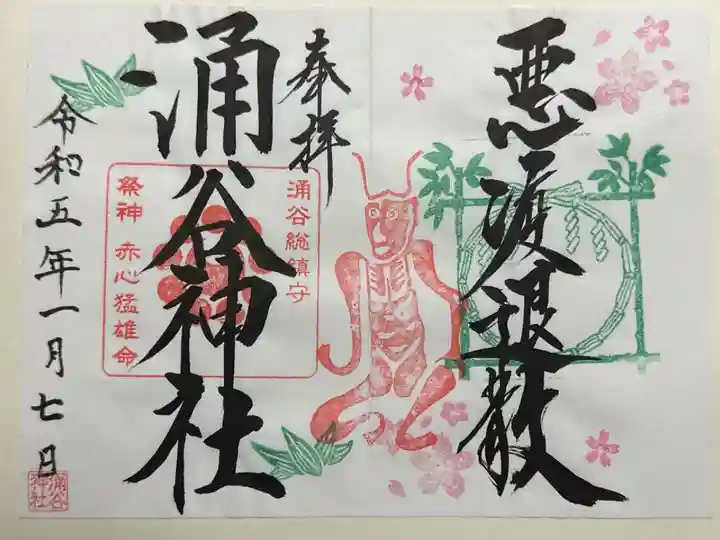 悪疫退散
奉拝
涌谷総鎮守
涌谷神社
祭神 赤心猛雄命
令和五年一月七日
涌谷
神社